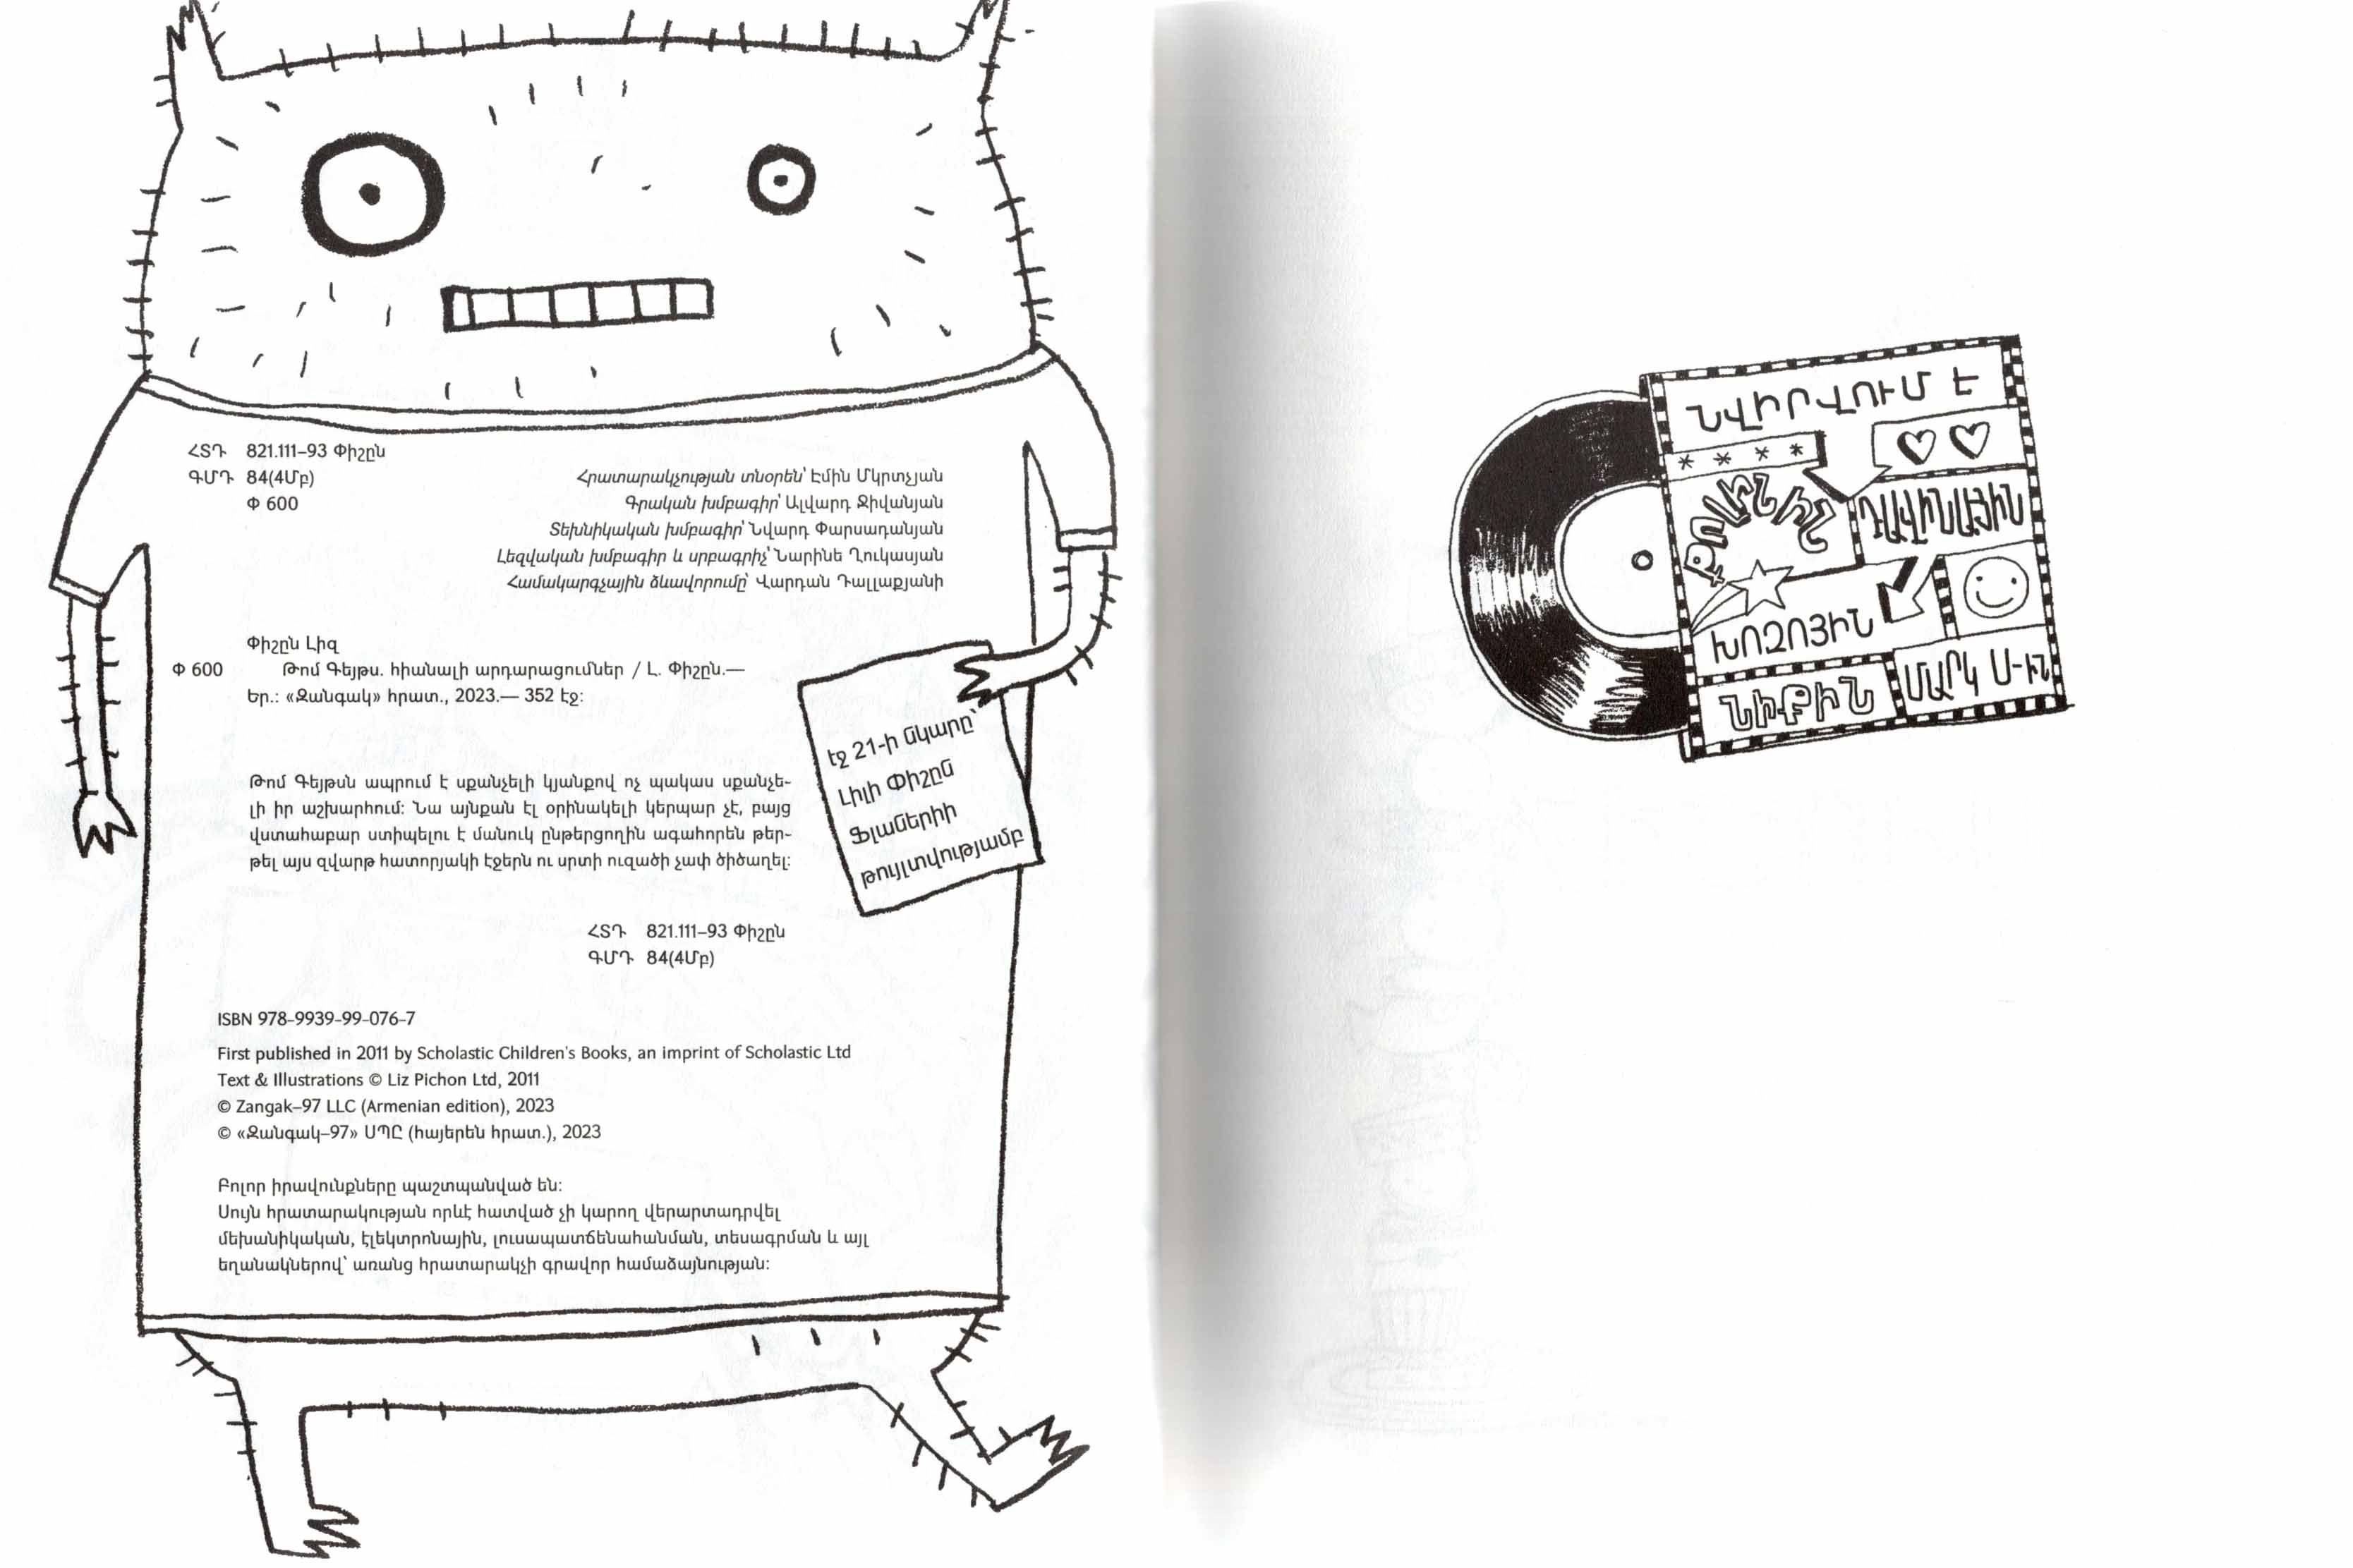 ՀՏԴ 821.111–93 Փիշըն
ԳՄԴ 84(4Մբ)
Փ 600
Հրատարակչության տնօրեն՝ Էմին Մկրտչյան
Գրական խմբագիր՝ Ալվարդ Ջիվանյան
Տեխնիկական խմբագիր՝ Նվարդ Փարսադանյան
Լեզվական խմբագիր և սրբագրիչ՝ Նարինե Ղուկասյան
Համակարգչային ձևավորումը՝ Վարդան Դալլաքյանի
Փիշըն Լիզ
Փ 600 Թոմ Գեյթս. հիանալի արդարացումներ / Լ. Փիշըն.—
Եր.: «Զանգակ» հրատ., 2023.— 352 էջ:
Թոմ Գեյթսն ապրում է սքանչելի կյանքով ոչ պակաս սքանչե-
լի իր աշխարհում: Նա այնքան էլ օրինակելի կերպար չէ, բայց
վստահաբար ստիպելու է մանուկ ընթերցողին ագահորեն թեր-
թել այս զվարթ հատորյակի էջերն ու սրտի ուզածի չափ ծիծաղել:
էջ 21-ի նկարը՝
Լիլի Փիշըն
Ֆլաներիի
թույլտվությամբ
ՀՏԴ 821.111–93 Փիշըն
ԳՄԴ 84(4Մբ)
ISBN 978–9939–99–076–7
First published in 2011 by Scholastic Children's Books, an imprint of Scholastic Ltd
Text & Illustrations © Liz Pichon Ltd, 2011
© Zangak–97 LLC (Armenian edition), 2023
© «Զանգակ–97» ՍՊԸ (հայերեն հրատ.), 2023
Բոլոր իրավունքները պաշտպանված են:
Սույն հրատարակության որևէ հատված չի կարող վերարտադրվել
մեխանիկական, էլեկտրոնային, լուսապատճենահանման, տեսագրման և այլ
եղանակներով՝ առանց հրատարակչի գրավոր համաձայնության:
ՆՎԻՐՎՈՒՄ Է
ԴԱՎԻՆԱՅԻՆ
ԽՈԶՈՅԻՆ
ՆԻՔԻՆ
ՄԱՐԿ Ս-ԻՆ